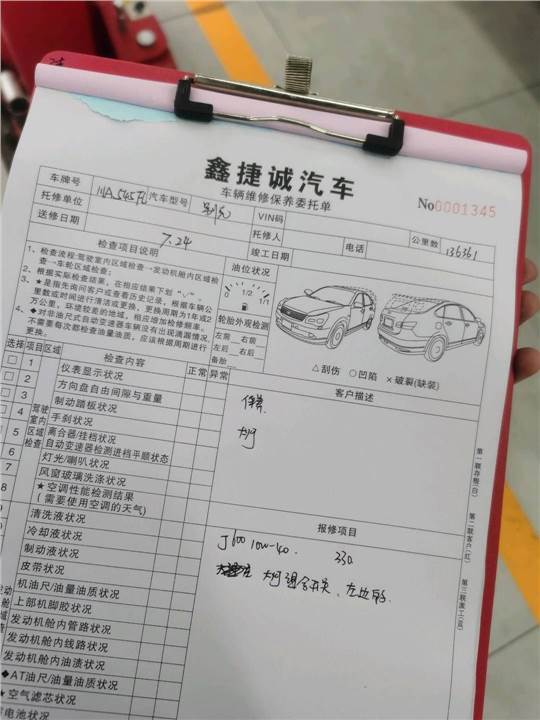 鑫捷诚汽车
车辆维修保养委托单
No0001345
车牌号 汽车型号 VIN码
托修单位 托修人 电话 公里数 136361
送修日期 7.24 竣工日期
检查项目说明
1、检查流程:驾驶室内区域检查→发动机舱内区域检查→车轮区域检查;
2、根据实际检查结果,在相应结果下划“√”。
3、★是指先询问客户或查看历史记录,根据车辆公里数或时间进行清洁或更换,更换周期为1年或2万公里,环境较差的地域,相应增加检修频率。
4、◆对非油尺式自动变速器车辆没有出现滴漏情况,不需要每次都检查油量油质,应该根据周期进行更换。
油位状况
0 1/2 1/1
轮胎外观检测
左前 右前
左后 右后
备胎
△刮伤 ○凹陷 ×破裂(缺装)
选择 项目 区域 检查内容 正常 异常
1 仪表显示状况
2 方向盘自由间隙与重量
3 制动踏板状况
4 手刹状况
5 离合器/挂档状况
自动变速器检测进档平顺状态
6 灯光/喇叭状况
7 风窗玻璃洗涤状况
8 ★空调性能检测结果
(需要使用空调的天气)
驾驶室内区域检查
清洗液状况
冷却液状况
制动液状况
皮带状况
机油尺/油量油质状况
上部机脚胶状况
发动机舱内管路状况
发动机舱内线路状况
发动机舱内油渍状况
◆AT油尺/油量油质状况
★空气滤芯状况
电池状况
客户描述
保养
大灯
报修项目
J600 10W-40. 330.
大灯组合开关、左边
第一联存根(白)
第二联客户(红)